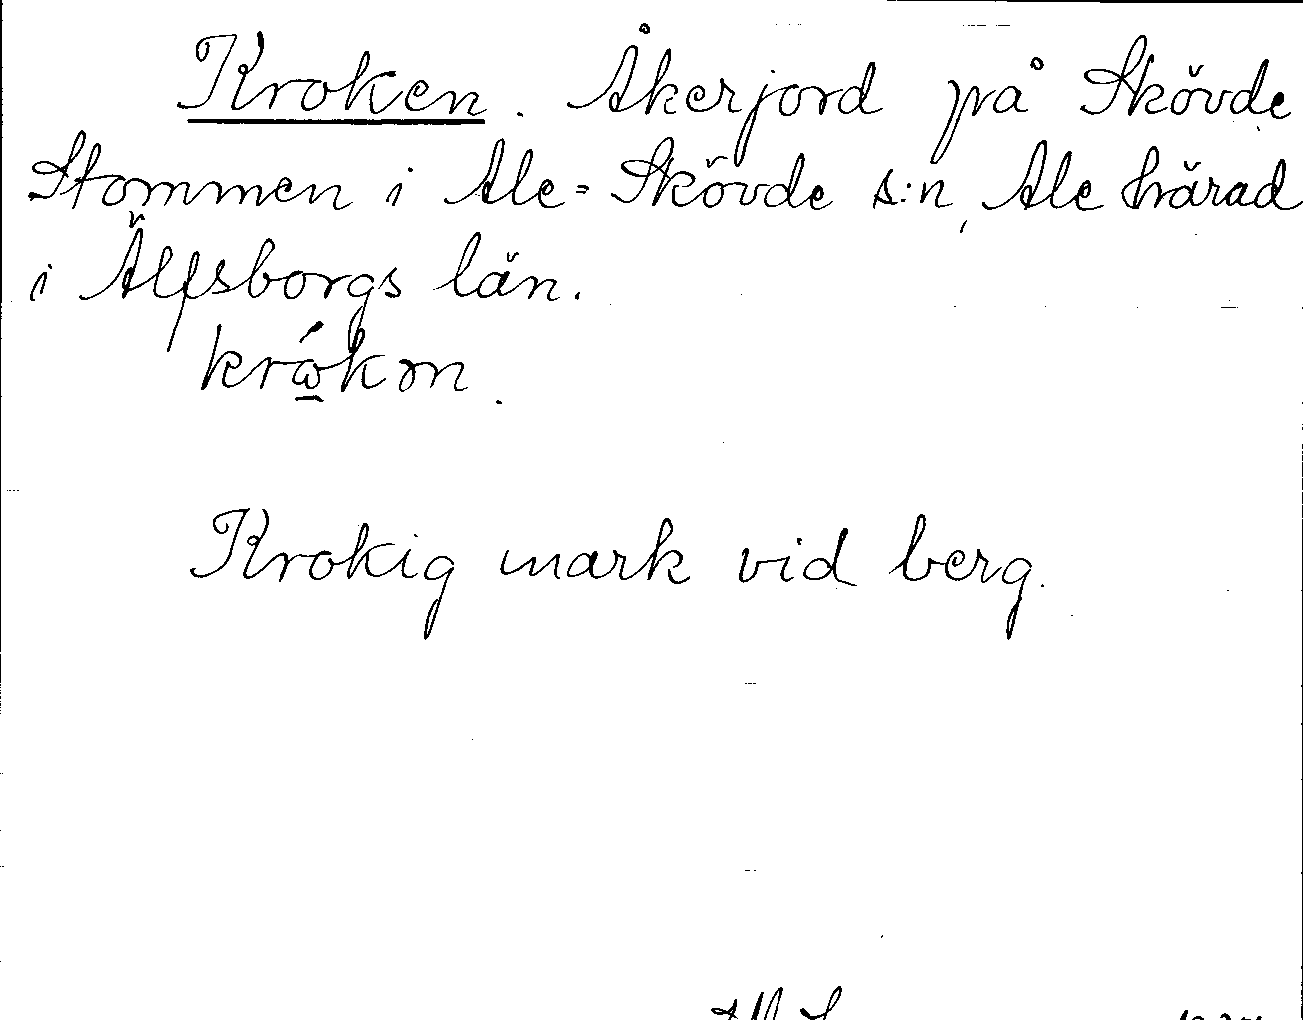 Kroken. Åkerjord på Skövde
Stommen i Ale-Skövde s:n, Ale härad
i Älfsborgs län.
Krokig mark vid berg.